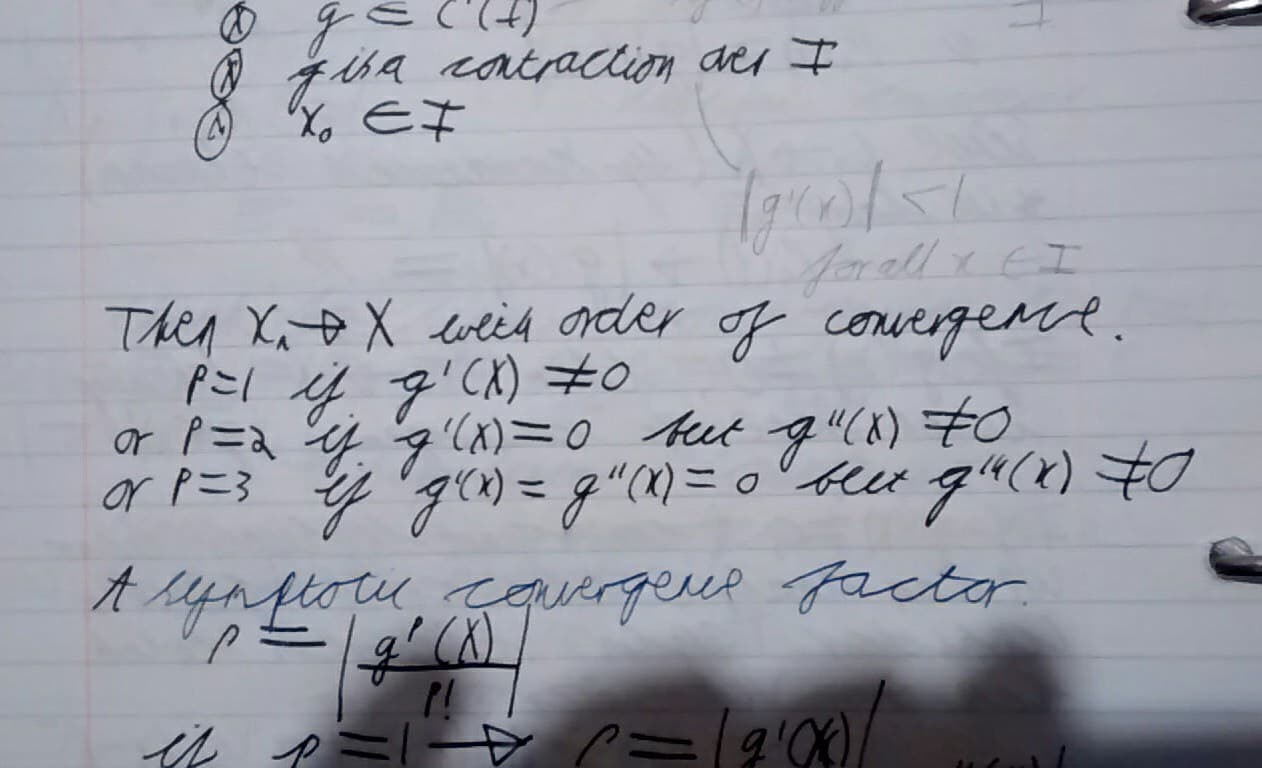 g ∈ C'(I)
g is a contraction over I
x₀ ∈ I
|g'(x)| < 1
for all x ∈ I
Then Xₙ → X with order of convergence.
P=1 if g'(X) ≠ 0
or P=2 if g'(X) = 0 but g''(X) ≠ 0
or P=3 if g'(X) = g''(X) = 0 but g'''(X) ≠ 0
Asymptotic convergence factor.
ρ = | gᵖ(X) / P! |
if p=1 → ρ = |g'(X)|